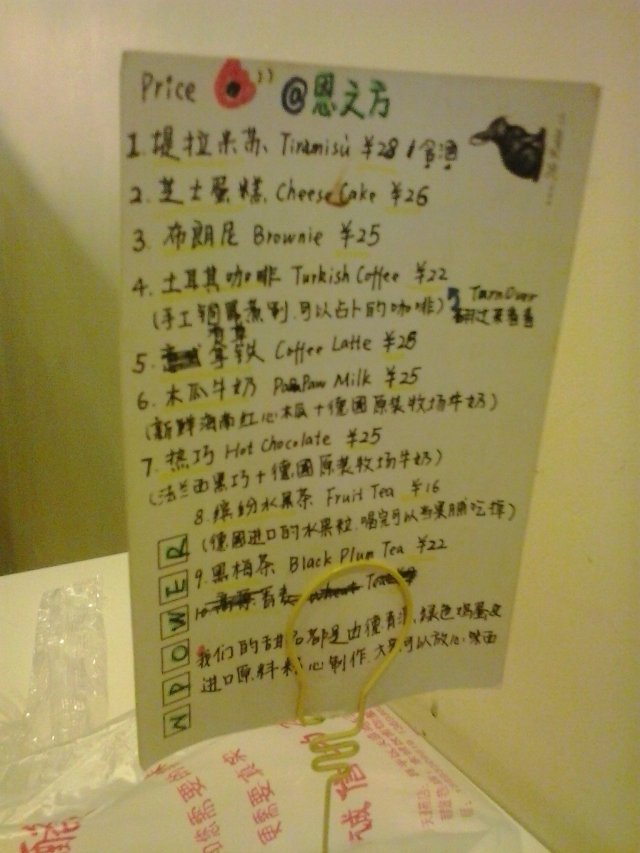 Price @恩之方
1. 提拉米苏 Tiramisù ¥28 / 含酒
2. 芝士蛋糕 Cheese Cake ¥26
3. 布朗尼 Brownie ¥25
4. 土耳其咖啡 Turkish Coffee ¥22
(手工铜器煮制,可以占卜的咖啡) TurnOver
翻过来看看
5. 拿铁 Coffee Latte ¥25
6. 木瓜牛奶 PawPaw Milk ¥25
(新鲜海南红心木瓜+德國原装牧场牛奶)
7. 热巧 Hot Chocolate ¥25
(法兰西黑巧+德國原装牧场牛奶)
8. 缤纷水果茶 Fruit Tea ¥16
(德國进口的水果粒,喝完可以当果脯吃掉)
9. 黑梅茶 Black Plum Tea ¥22
10
我们的甜品都是由德青源绿色鸡蛋及
进口原料精心制作,大家可以放心
WPOWER
你需要
更需要
诚信